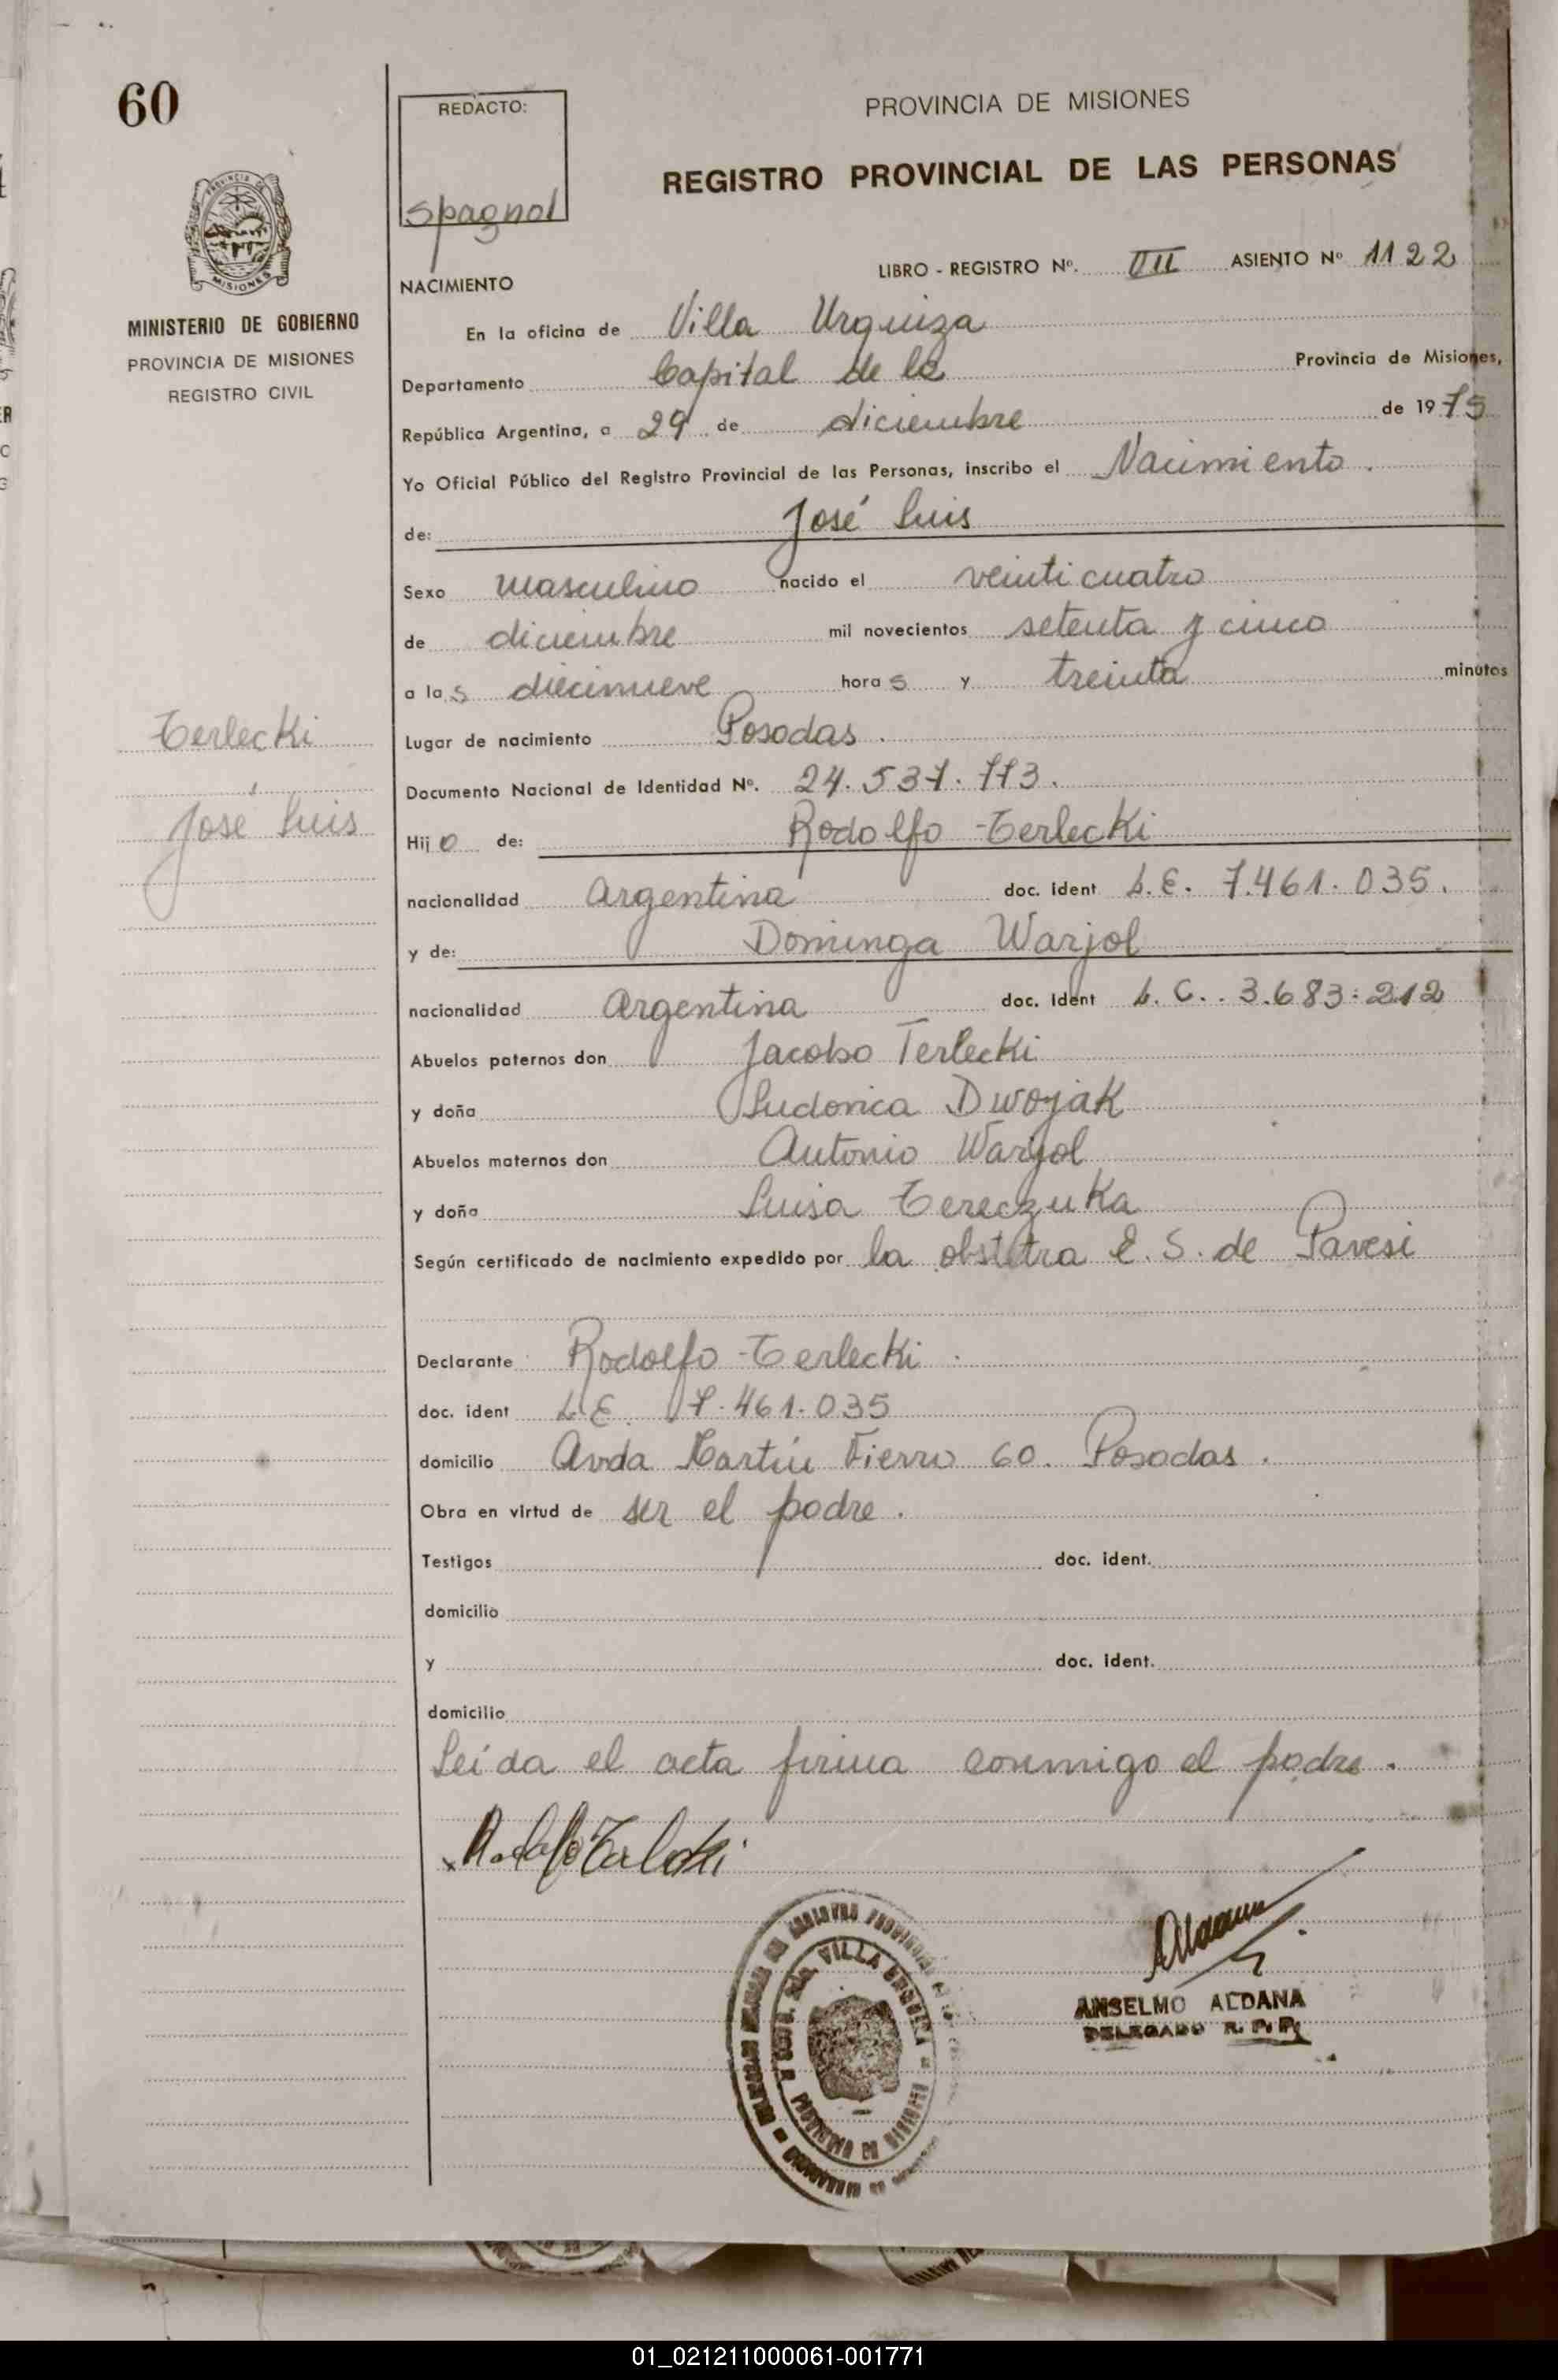 60
REDACTO:
Spagnol
PROVINCIA DE MISIONES
REGISTRO PROVINCIAL DE LAS PERSONAS
MISIONES
MINISTERIO DE GOBIERNO
PROVINCIA DE MISIONES
REGISTRO CIVIL
LIBRO - REGISTRO Nº. VII ASIENTO Nº 1122
NACIMIENTO
En la oficina de Villa Urquiza
Departamento Capital de la Provincia de Misiones,
República Argentina, a 29 de diciembre de 1975
Yo Oficial Público del Registro Provincial de las Personas, inscribo el Nacimiento.
de: José Luis
Sexo masculino nacido el veinticuatro
de diciembre mil novecientos setenta y cinco
a las diecinueve horas y treinta minutos
Terlecki
José Luis
Lugar de nacimiento Posadas.
Documento Nacional de Identidad Nº. 24.537.773.
Hijo de: Rodolfo Terlecki
nacionalidad Argentina doc. ident L.E. 7.461.035.
y de: Dominga Warjol
nacionalidad Argentina doc. Ident L.C. 3.683.212
Abuelos paternos don Jacobo Terlecki
y doña Ludovica Dwojak
Abuelos maternos don Antonio Warjol
y doña Luisa Tereczuka
Según certificado de nacimiento expedido por la obstetra E. S. de Pavesi
Declarante Rodolfo Terlecki.
doc. ident L.E. 7.461.035
domicilio Avda Martín Fierro 60. Posadas.
Obra en virtud de ser el padre.
Testigos doc. ident.
domicilio
y doc. ident.
domicilio
Leída el acta firma conmigo el padre.
Rodolfo Terlecki
VILLA URQUIZA
PROVINCIA DE MISIONES
ANSELMO ALDANA
DELEGADO R. P. P.
01_021211000061-001771